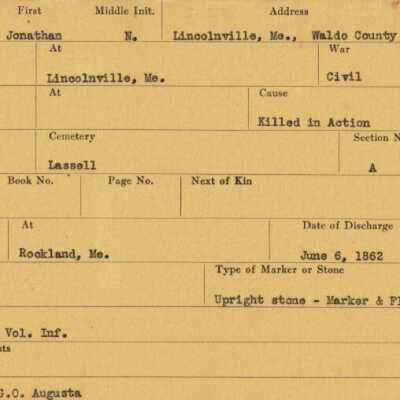 First Middle Init. Address
Jonathan N. Lincolnville, Me., Waldo County
At War
Lincolnville, Me. Civil
At Cause
Killed in Action
Cemetery Section N
Lassell A
Book No. Page No. Next of Kin
At Date of Discharge
Rockland, Me. June 6, 1862
Type of Marker or Stone
Upright stone - Marker & Fl
Vol. Inf.
nts
G.O. Augusta